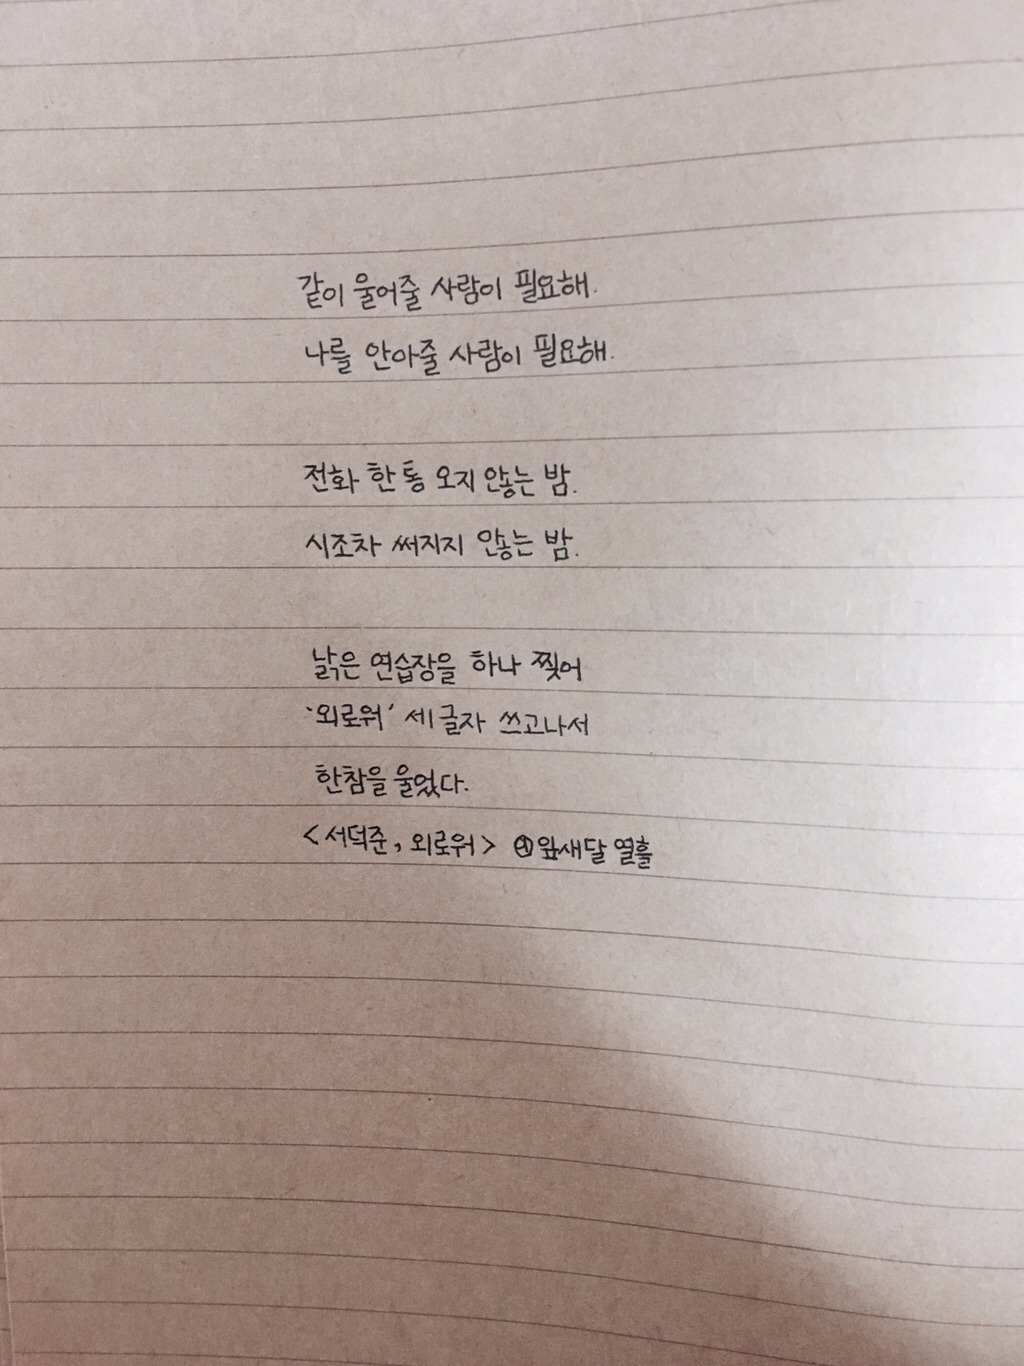 같이 울어줄 사람이 필요해.
나를 안아줄 사람이 필요해.
전화 한 통 오지 않는 밤.
시조차 써지지 않는 밤.
낡은 연습장을 하나 찢어
'외로워' 세 글자 쓰고나서
한참을 울었다.
<서덕준, 외로워> 잎새달 열흘